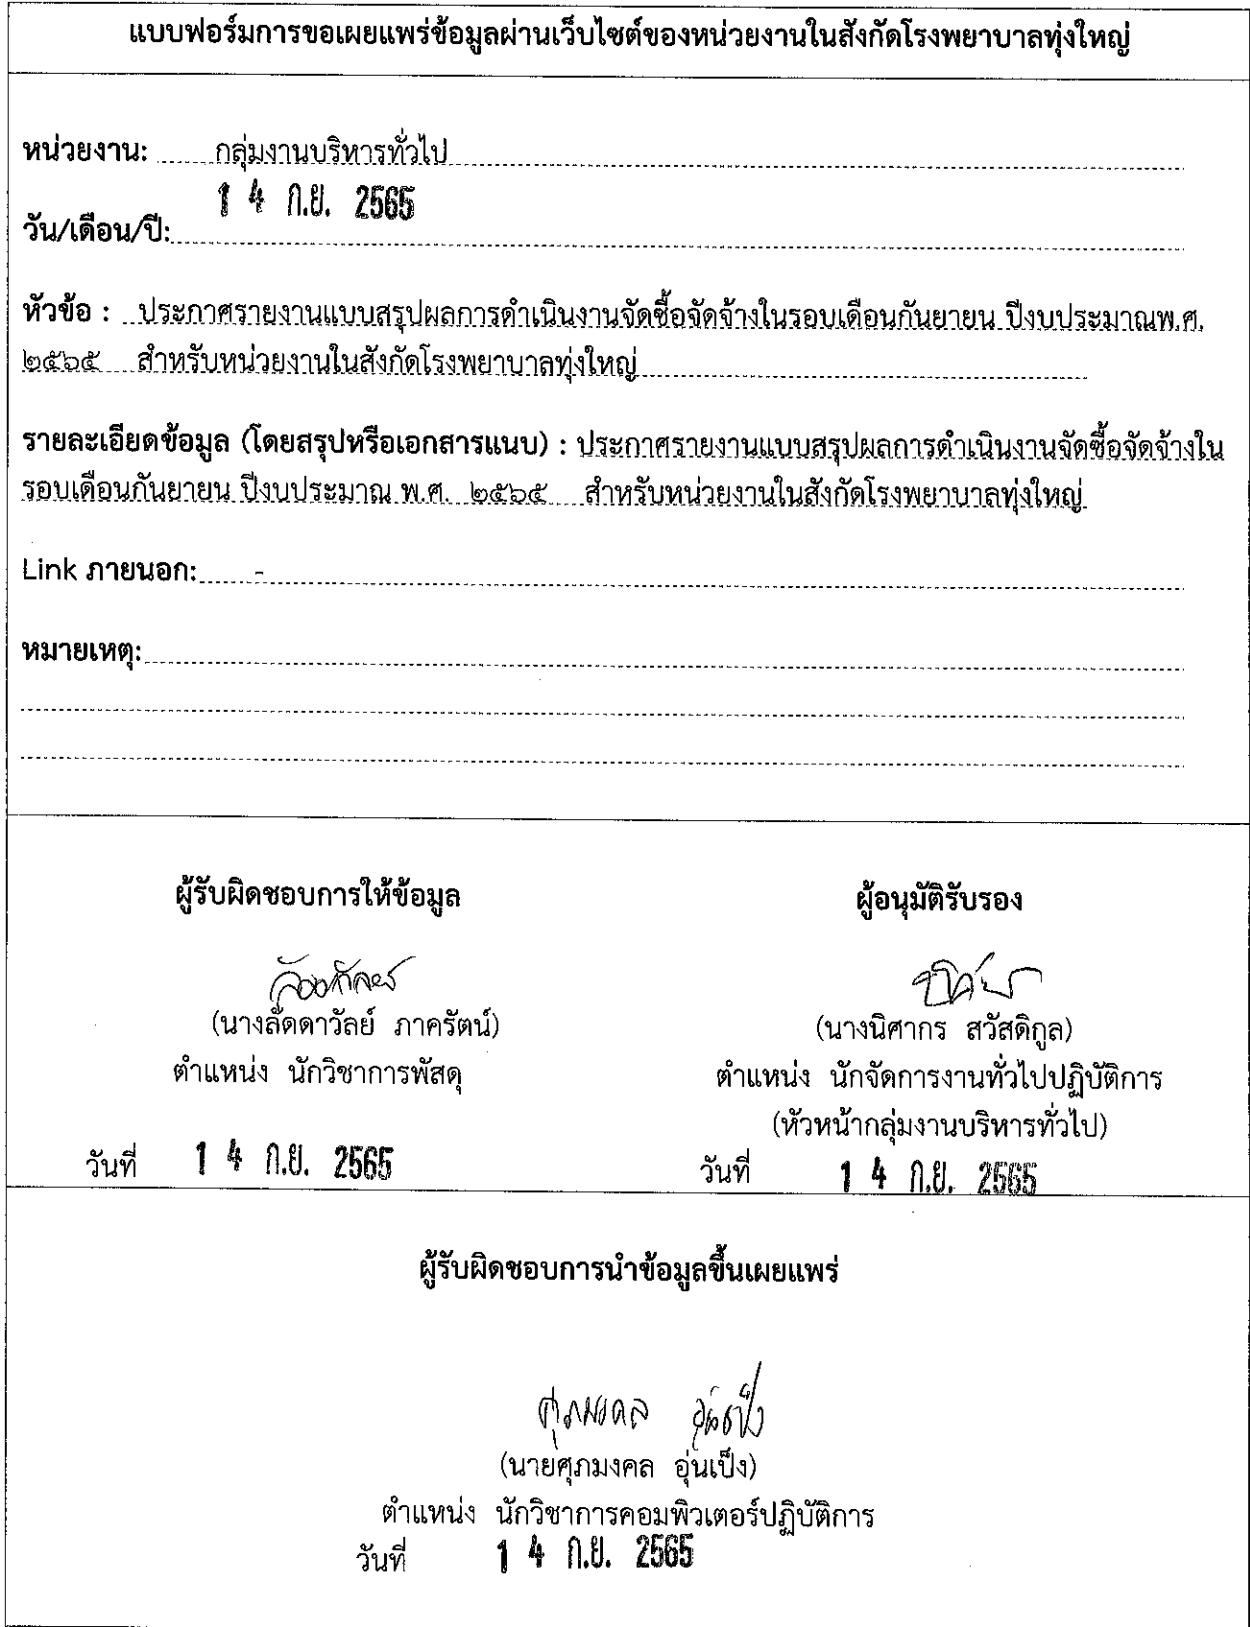 แบบฟอร์มการขอเผยแพร่ข้อมูลผ่านเว็บไซต์ของหน่วยงานในสังกัดโรงพยาบาลทุ่งใหญ่
หน่วยงาน: กลุ่มงานบริหารทั่วไป
1 4 ก.ย. 2565
วัน/เดือน/ปี:
หัวข้อ : ประกาศรายงานแบบสรุปผลการดำเนินงานจัดซื้อจัดจ้างในรอบเดือนกันยายน ปีงบประมาณพ.ศ.
๒๕๖๕ สำหรับหน่วยงานในสังกัดโรงพยาบาลทุ่งใหญ่
รายละเอียดข้อมูล (โดยสรุปหรือเอกสารแนบ) : ประกาศรายงานแบบสรุปผลการดำเนินงานจัดซื้อจัดจ้างใน
รอบเดือนกันยายน ปีงบประมาณ พ.ศ. ๒๕๖๕ สำหรับหน่วยงานในสังกัดโรงพยาบาลทุ่งใหญ่
Link ภายนอก: -
หมายเหตุ:
ผู้รับผิดชอบการให้ข้อมูล
(นางลัดดาวัลย์ ภาครัตน์)
ตำแหน่ง นักวิชาการพัสดุ
วันที่ 1 4 ก.ย. 2565
ผู้อนุมัติรับรอง
(นางนิศากร สวัสดิกูล)
ตำแหน่ง นักจัดการงานทั่วไปปฏิบัติการ
(หัวหน้ากลุ่มงานบริหารทั่วไป)
วันที่ 1 4 ก.ย. 2565
ผู้รับผิดชอบการนำข้อมูลขึ้นเผยแพร่
ศุภมงคล อุ่นเป็ง
(นายศุภมงคล อุ่นเป็ง)
ตำแหน่ง นักวิชาการคอมพิวเตอร์ปฏิบัติการ
วันที่ 1 4 ก.ย. 2565